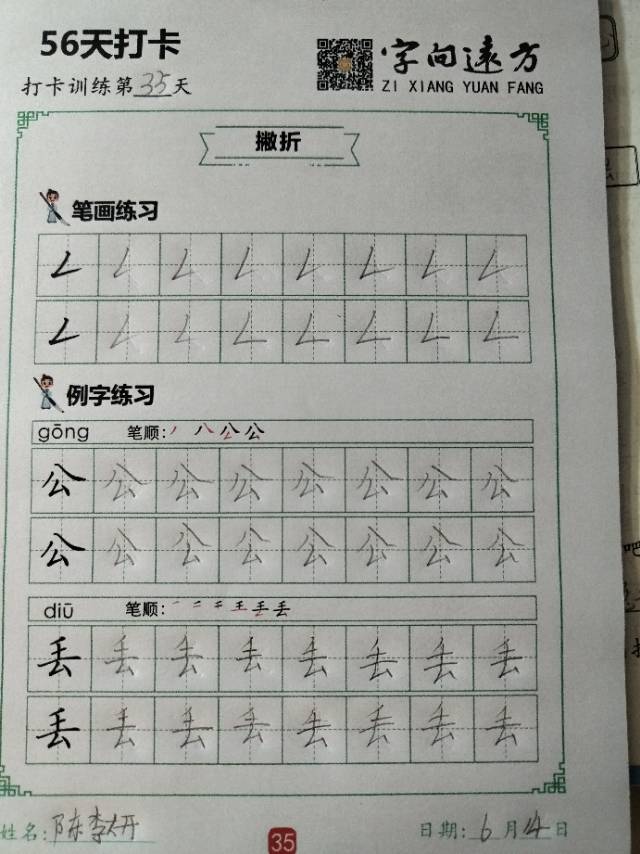 56天打卡
字向遠方
打卡训练第35天
ZI XIANG YUAN FANG
撇折
笔画练习
例字练习
gōng 笔顺: 丿 八 公 公
公 公 公 公 公 公 公 公
公 公 公 公 公 公 公 公
diū 笔顺: 一 二 キ 王 丢 丢
丢 丢 丢 丢 丢 丢 丢 丢
丢 丢 丢 丢 丢 丢 丢 丢
姓名: 陈李
35
日期: 6月14日